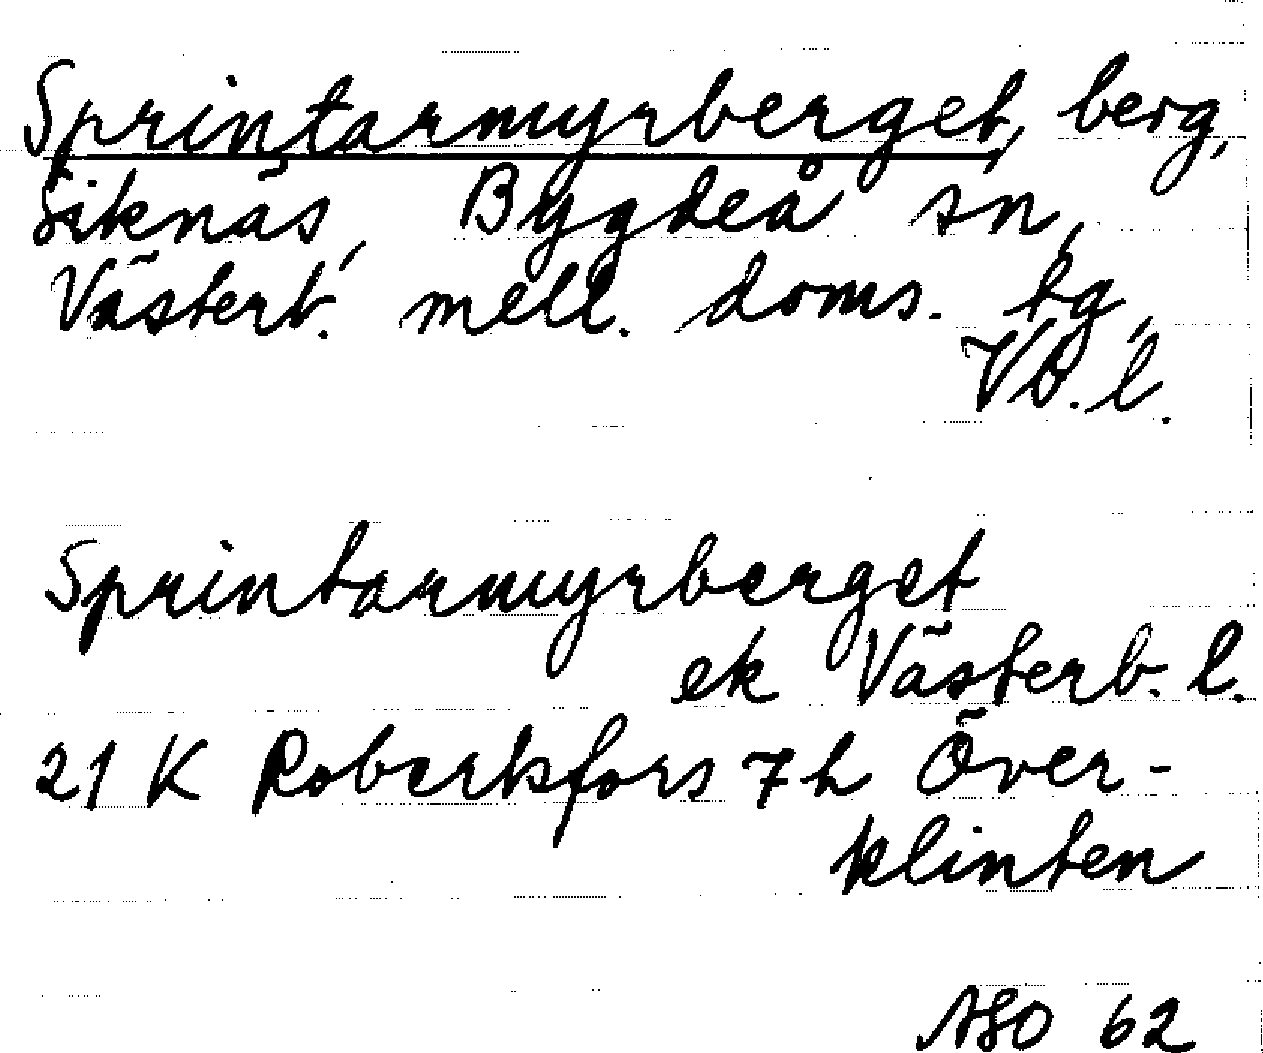 Sprintarmyrberget, berg,
Siknäs, Bygdeå sn,
Västerb. mell. doms. tg,
Vb. l.
Sprintarmyrberget
ek Västerb. l.
21 K Robertsfors 7 h Över-
klinten
ASO 62